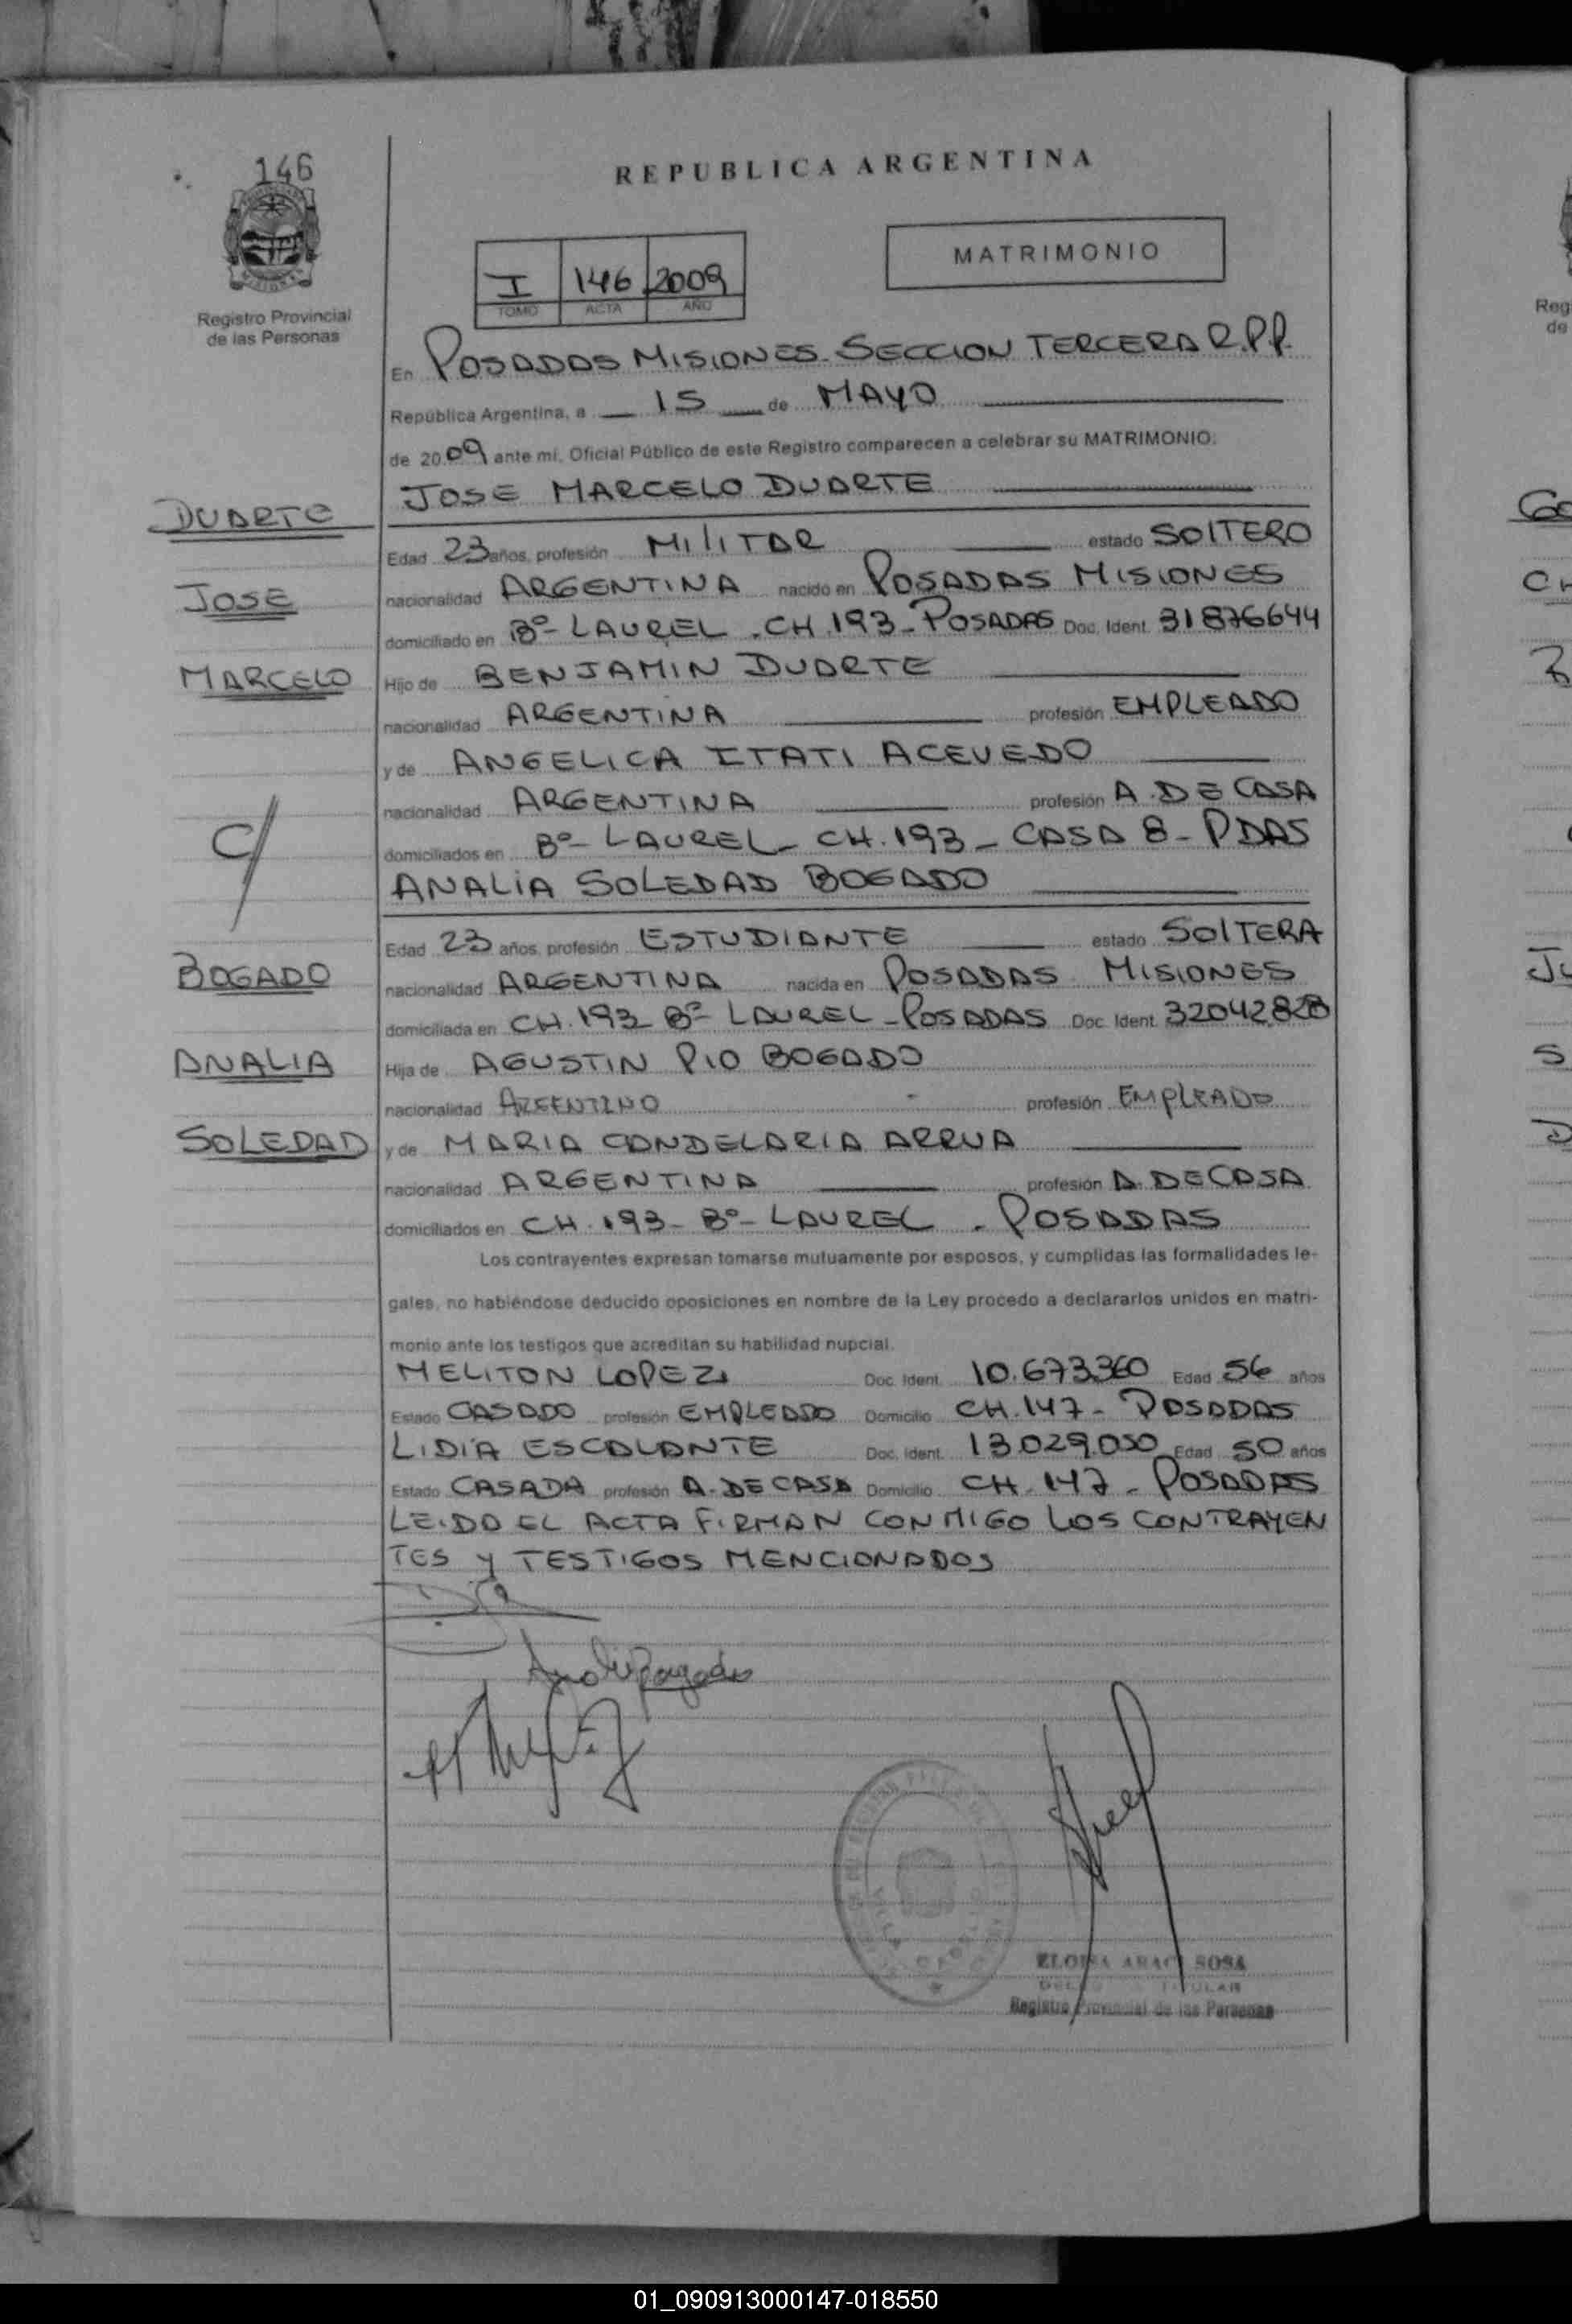 146
Registro Provincial
de las Personas
REPUBLICA ARGENTINA
I 146 2009
TOMO ACTA AÑO
MATRIMONIO
En POSADAS MISIONES - SECCION TERCERA R.P.P.
República Argentina, a 15 de MAYO
de 2009 ante mí, Oficial Público de este Registro comparecen a celebrar su MATRIMONIO:
JOSE MARCELO DUARTE
DUARTE
Edad 23 años, profesión MILITAR estado SOLTERO
JOSE
nacionalidad ARGENTINA nacido en POSADAS MISIONES
domiciliado en Bº- LAUREL - CH. 193 - POSADAS Doc. Ident. 31876644
MARCELO
Hijo de BENJAMIN DUARTE
nacionalidad ARGENTINA profesión EMPLEADO
y de ANGELICA ITATI ACEVEDO
nacionalidad ARGENTINA profesión A. DE CASA
C/
domiciliados en Bº- LAUREL - CH. 193 - CASA 8 - PDAS
ANALIA SOLEDAD BOGADO
Edad 23 años, profesión ESTUDIANTE estado SOLTERA
BOGADO
nacionalidad ARGENTINA nacida en POSADAS MISIONES
domiciliada en CH. 193 Bº- LAUREL - POSADAS Doc. Ident. 32042828
ANALIA
Hija de AGUSTIN PIO BOGADO
nacionalidad ARGENTINO profesión EMPLEADO
SOLEDAD
y de MARIA CANDELARIA ARRUA
nacionalidad ARGENTINA profesión A. DE CASA
domiciliados en CH. 193 - Bº- LAUREL - POSADAS
Los contrayentes expresan tomarse mutuamente por esposos, y cumplidas las formalidades le-
gales, no habiéndose deducido oposiciones en nombre de la Ley procedo a declararlos unidos en matri-
monio ante los testigos que acreditan su habilidad nupcial.
MELITON LOPEZ Doc. Ident. 10.673.360 Edad 56 años
Estado CASADO profesión EMPLEADO Domicilio CH. 147 - POSADAS
LIDIA ESCALANTE Doc. Ident. 13.029.050 Edad 50 años
Estado CASADA profesión A. DE CASA Domicilio CH. 147 - POSADAS
LEIDO EL ACTA FIRMAN CONMIGO LOS CONTRAYEN
TES Y TESTIGOS MENCIONADOS
ELOISA ARACI SOSA
TITULAR
Registro Provincial de las Personas
01_090913000147-018550